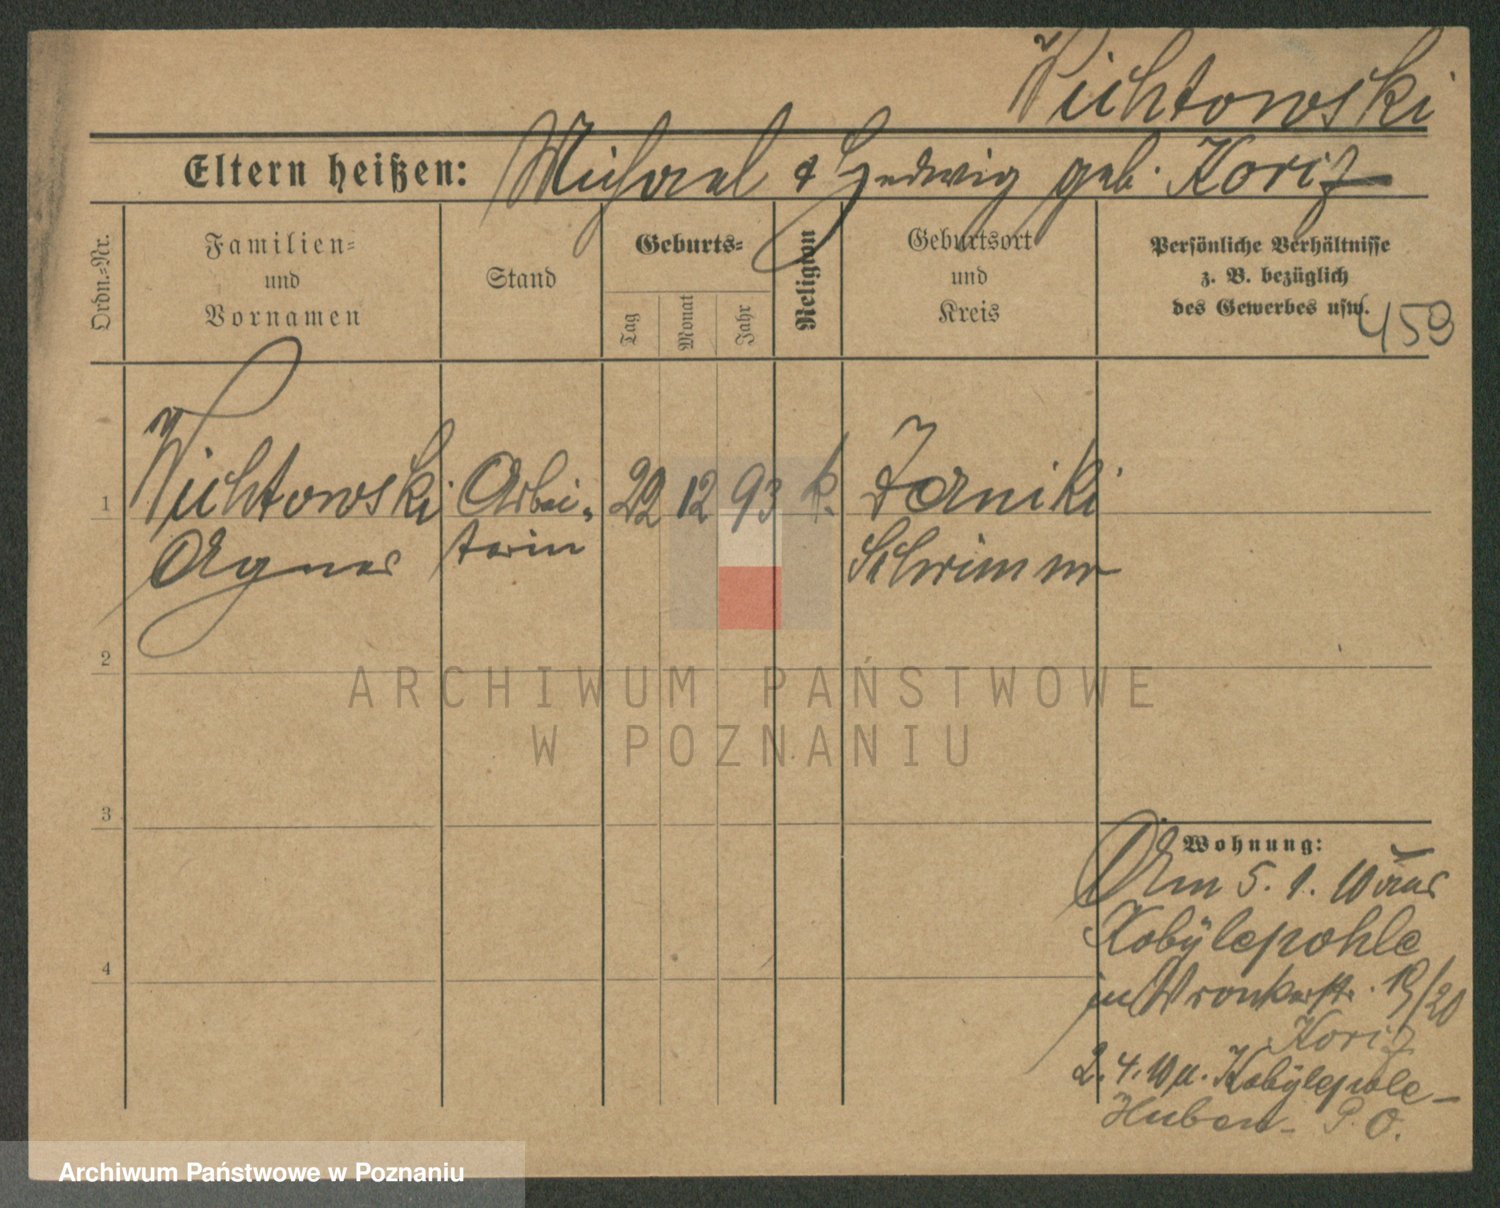 Wichtowski
Eltern heißen: Michael & Hedwig geb. Koriz
Ordn.-Nr.
Familien-
und
Vornamen
Stand
Geburts-
Tag
Monat
Jahr
Religion
Geburtsort
und
Kreis
Persönliche Verhältnisse
z. B. bezüglich
des Gewerbes usw.
459
1
Wichtowski
Agnes
Arbei-
terin
22
12
93
k.
Zerniki
Schrimm
2
3
4
ARCHIWUM PAŃSTWOWE
W POZNANIU
Wohnung:
Am 5. 1. 10 aus
Kobylepohle
in Wronkerstr. 19/20
Koriz
2. 4. 10 n. Kobylepole-
Huben- P. O.
Archiwum Państwowe w Poznaniu